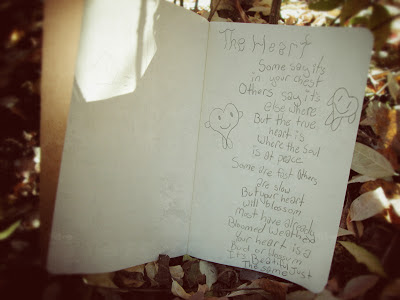 The Heart
Some say it's
in your chest
Others say it's
else where
But the true
heart is
where the soul
is at peace
Some are fast others
are slow
But your heart
will blossom
most have already
Bloomed Weather
Your heart is a
Bud or
It's Beautiful Just
The same